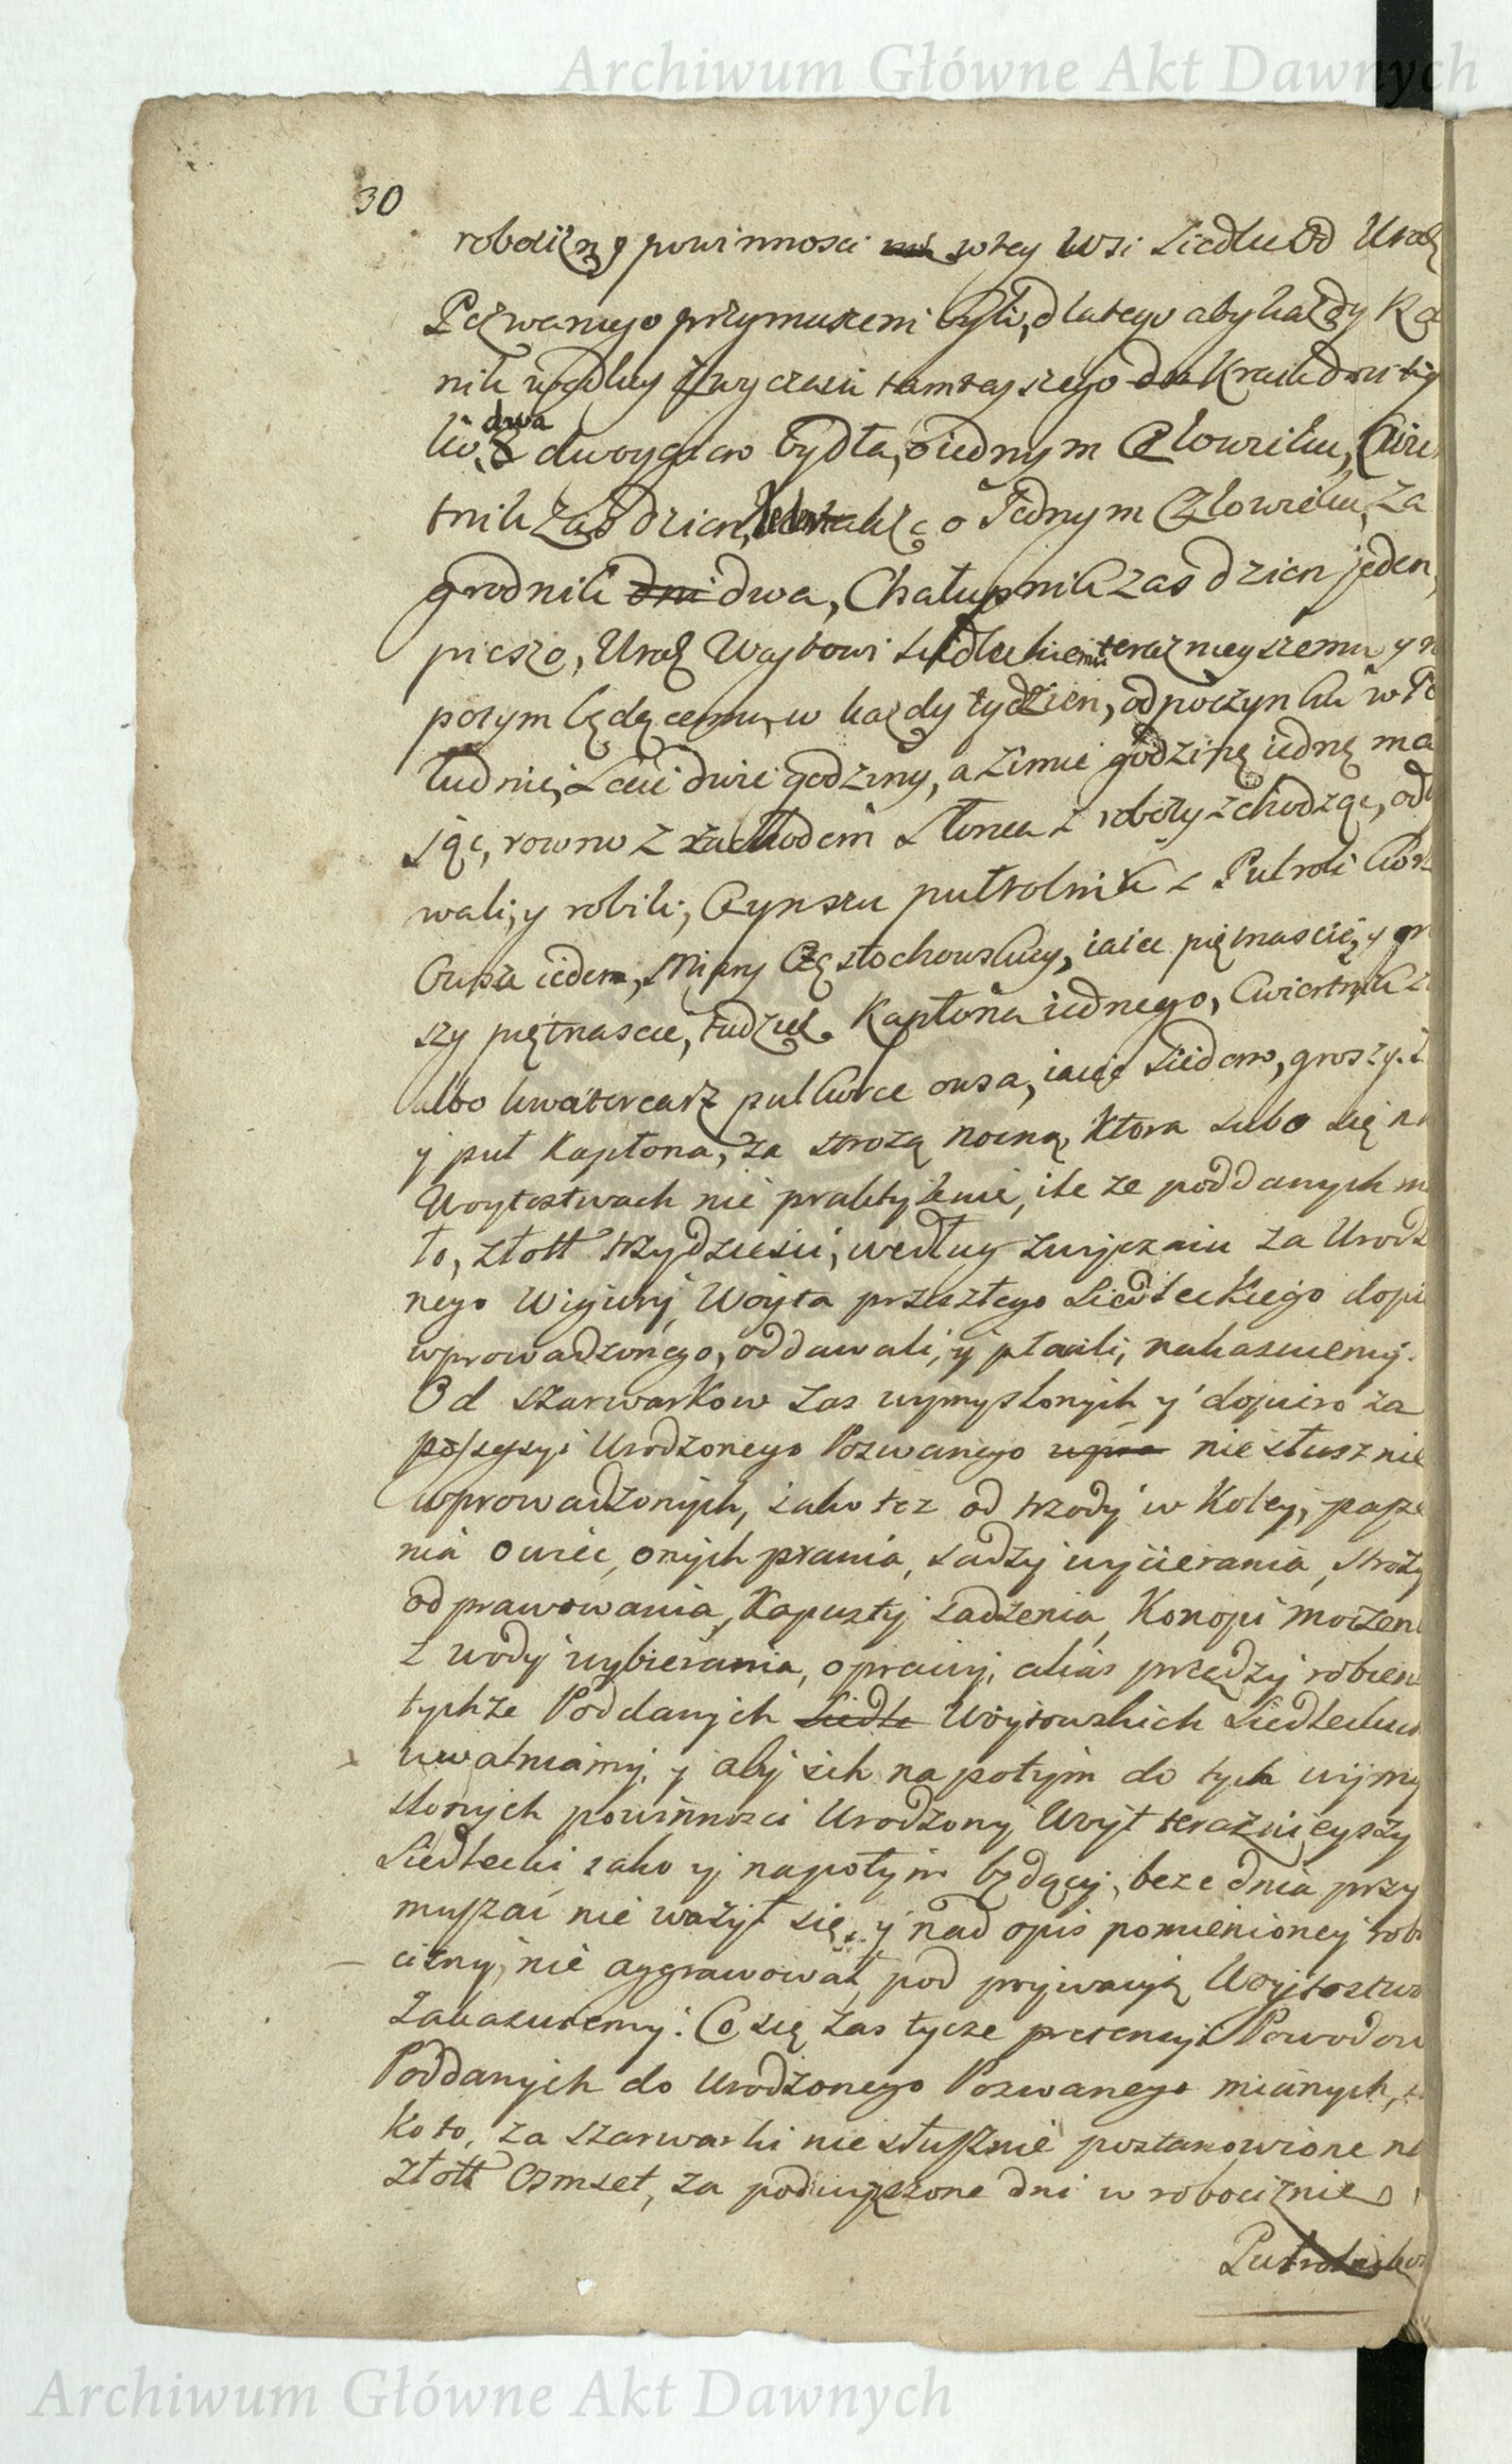 Archiwum Główne Akt Dawnych
30
robocizny powinnosci w tey Wsi Siedlcu od Urodz
Pozwanego przymuszeni byli, dlatego aby każdy Ra
nik według zwyczaiu tamtayszego
dwa
dwoygiem bydła, o iednym Człowieku, Cwier
tnik zas dzien, także o Jednym Człowieku, Za
grodnik dni dwa, Chałupnik zas dzien jeden,
pieszo, Urodz Woytowi Siedleckiemu terazneyszemu y n
potym będącemu, w kazdy tydzien, odpoczynku w Po
łudnie, Lecie dwie godziny, a Zimie godzinę iednę ma
jąc, rowno z zachodem Słonca z roboty zchodząc, odb
wali, y robili, Czynszu pułrolnik z Pułroli Korz
Owsa ieden, Miary Częstochowskiey, iaiec piętnascie, y gr
szy piętnascie, tudziesz Kapłona iednego, Cwiertnik z
albo kwatercarz pułkorce owsa, iaiec siedem, groszy.
y puł Kapłona, za strożą nocną, Ktora lubo się na
Woytostwach nie praktykuie, ile ze poddanych m
to, złott trzydziesci, według zwyczaiu za Urodz
nego Wigury, Woyta przeszłego Siedleckiego dopi
wprowadzonego, oddawali, y płacili, nakazuiemy.
Od szarwarkow zas wymyslonych y dopiero za
possessyi Urodzonego Pozwanego niesłusznie
wprowadzonych, iako tez od trzody w Koley, pasze
nia owiec, onych prania, sadzy wycierania, stroży
odprawowania, Kapusty sadzenia, Konopi moczeni
z wody wybierania, oprawy, alias przędzy robieni
tychze Poddanych Siedle Woytowskich Siedleckic
uwalniamy, y aby ich na potym do tych wymy
slonych powinnosci Urodzony Woyt terazneyszy
Siedlecki iako y napotym będący, beze dnia przy
muszac nie ważył się, y nad opis pomienioney robo
cizny, nie aggrawował, pod prywacyą Woytostwa
Zakazuiemy. Co się zas tycze pretensyi Powodow
Poddanych do Urodzonego Pozwanego mianych,
Ko to, za szarwarki niesłusznie postanowione
złott Osmset, za podwyzszone dni w robociznie
Archiwum Główne Akt Dawnych